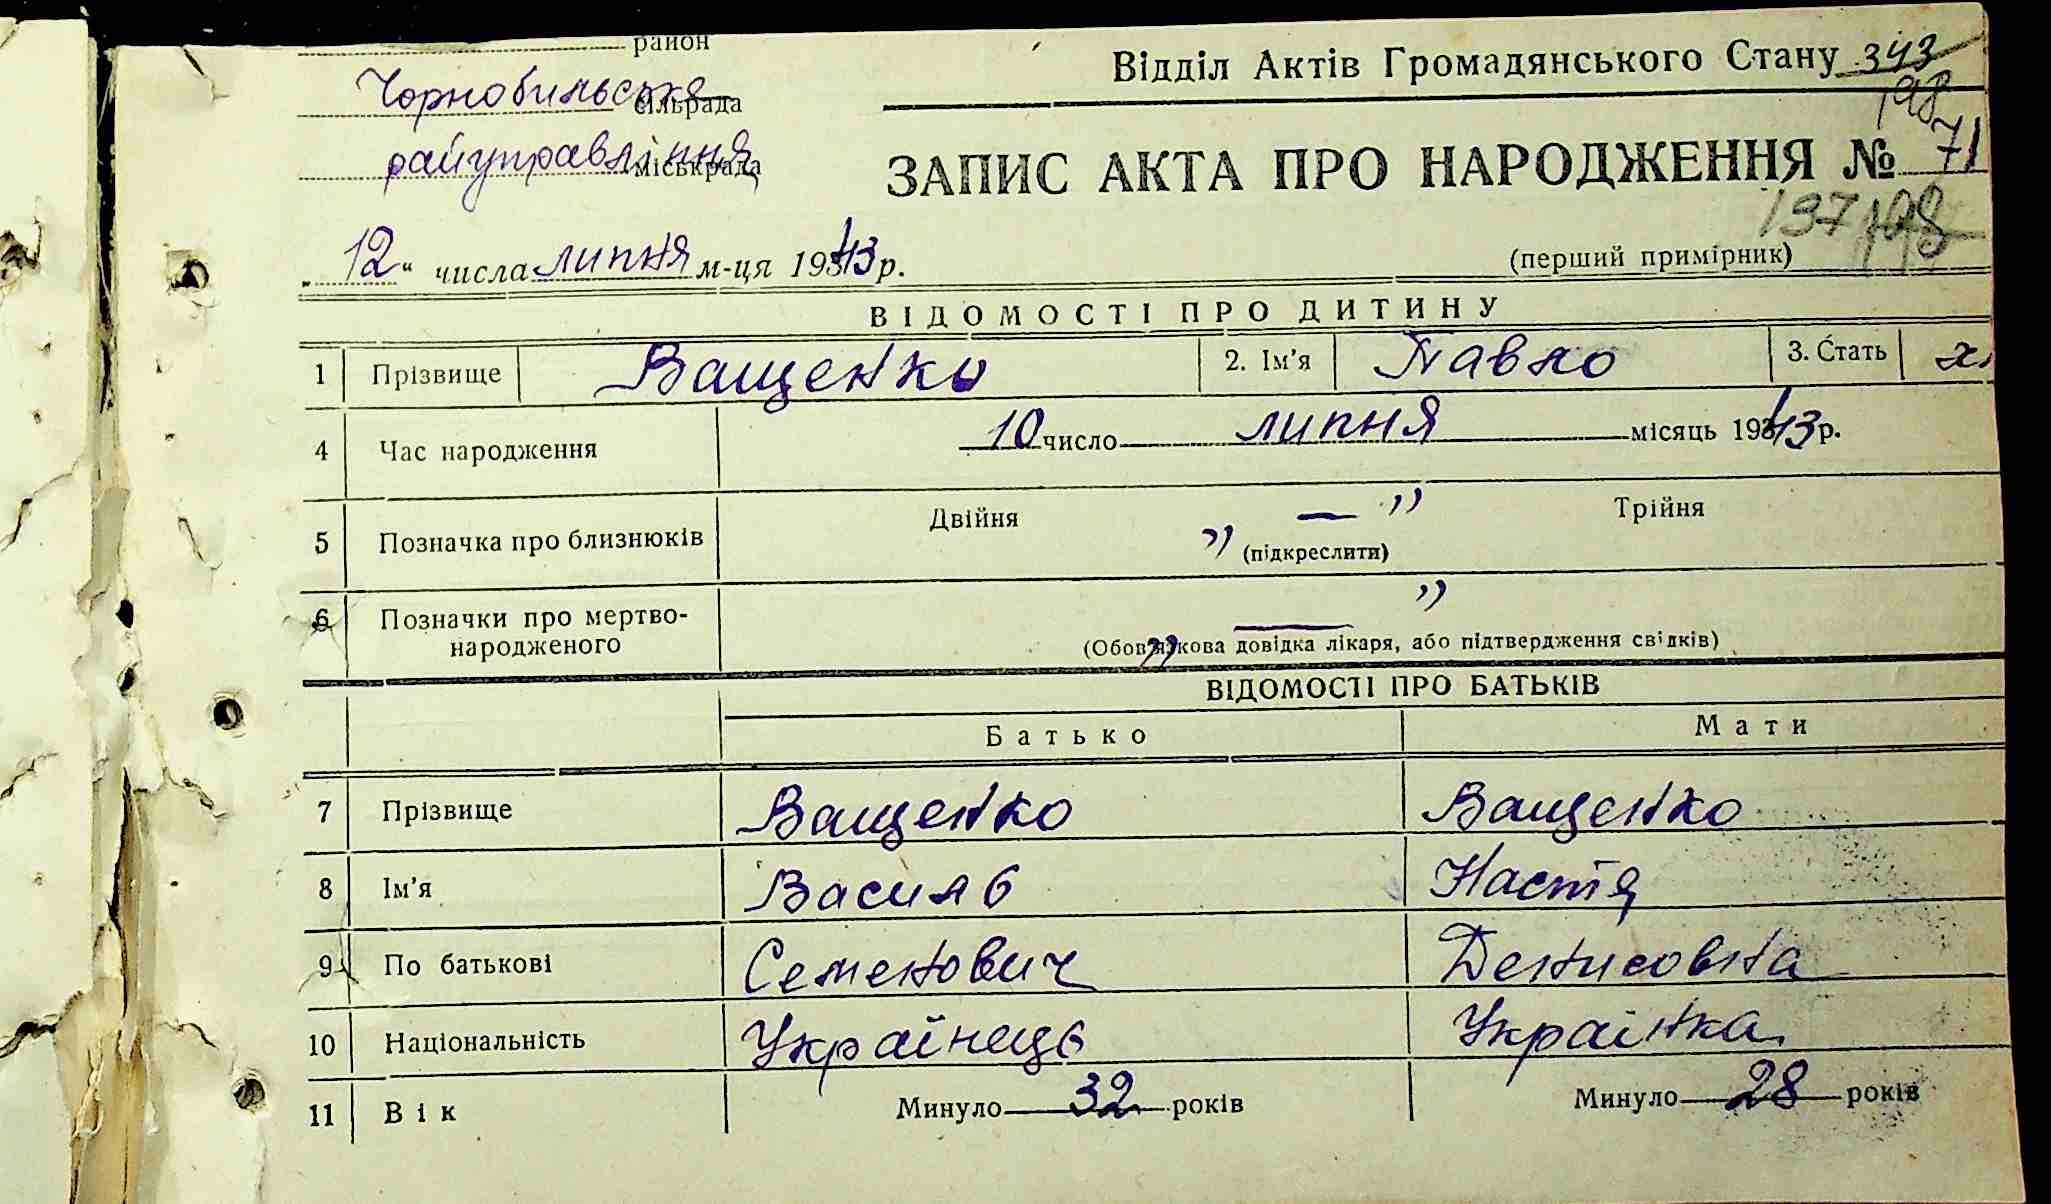 район
Відділ Актів Громадянського Стану 343
Чорнобильська сільрада
198
райуправління міськрада
ЗАПИС АКТА ПРО НАРОДЖЕННЯ № 71
137 198
„12“ числа липня м-ця 1943 р.
(перший примірник)
ВІДОМОСТІ ПРО ДИТИНУ
1 Прізвище Ващенко 2. Ім'я Павло 3. Стать
4 Час народження 10 число липня місяць 1943 р.
5 Позначка про близнюків Двійня " — " Трійня
(підкреслити)
6 Позначки про мертво-
народженого " — "
(Обов'язкова довідка лікаря, або підтвердження свідків)
ВІДОМОСТІ ПРО БАТЬКІВ
Батько Мати
7 Прізвище Ващенко Ващенко
8 Ім'я Василь Настя
9 По батькові Семенович Денисовна
10 Національність Українець Українка
11 Вік Минуло 32 років Минуло 28 років